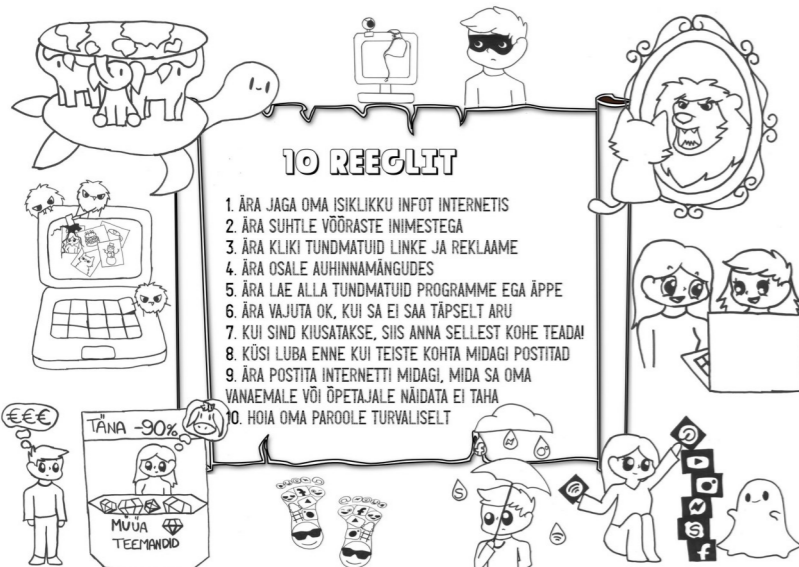 10 REEGLIT
1. ÄRA JAGA OMA ISIKLIKKU INFOT INTERNETIS
2. ÄRA SUHTLE VÕÕRASTE INIMESTEGA
3. ÄRA KLIKI TUNDMATUID LINKE JA REKLAAME
4. ÄRA OSALE AUHINNAMÄNGUDES
5. ÄRA LAE ALLA TUNDMATUID PROGRAMME EGA ÄPPE
6. ÄRA VAJUTA OK, KUI SA EI SAA TÄPSELT ARU
7. KUI SIND KIUSATAKSE, SIIS ANNA SELLEST KOHE TEADA!
8. KÜSI LUBA ENNE KUI TEISTE KOHTA MIDAGI POSTITAD
9. ÄRA POSTITA INTERNETTI MIDAGI, MIDA SA OMA
VANAEMALE VÕI ÕPETAJALE NÄIDATA EI TAHA
10. HOIA OMA PAROOLE TURVALISELT
€€€
TÄNA -90%
MÜÜA
TEEMANDID